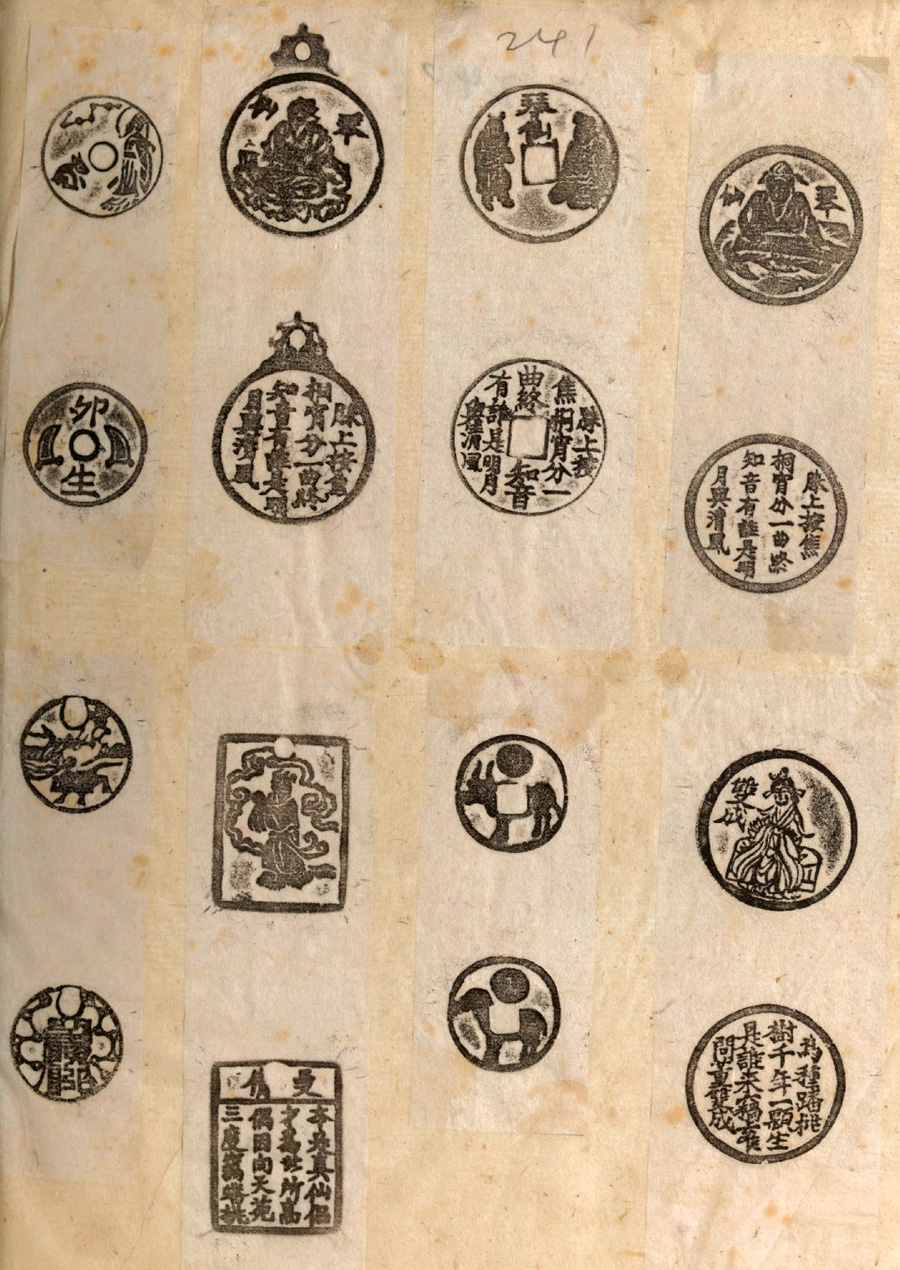 241
琴仙
琴仙
琴仙
卯生
膝上按焦
桐宵分一曲終
知音有誰是明
月與清風
膝上按
焦桐宵分一
曲終知音
有誰是明月
與清風
膝上按焦
桐宵分一曲終
知音有誰是明
月與清風
雙成
本來真仙侶
才為世所高
偶因向天苑
三度竊蟠桃
為種蟠桃
樹千年一顆生
是誰來竊去
問董雙成